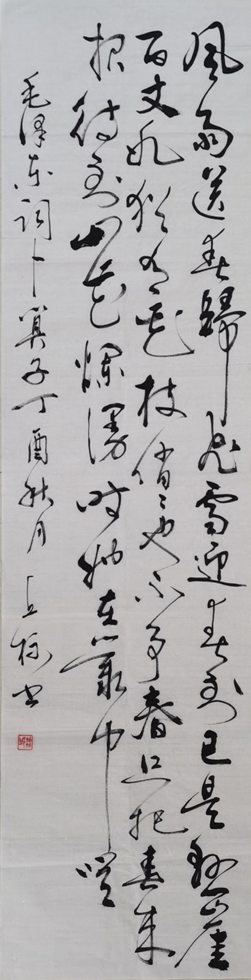 風雨送春歸飛雪迎春到已是懸崖
百丈冰犹有花枝俏俏也不争春只把春来
报待到山花爛漫时她在叢中咲
毛泽东词卜算子丁酉秋月书